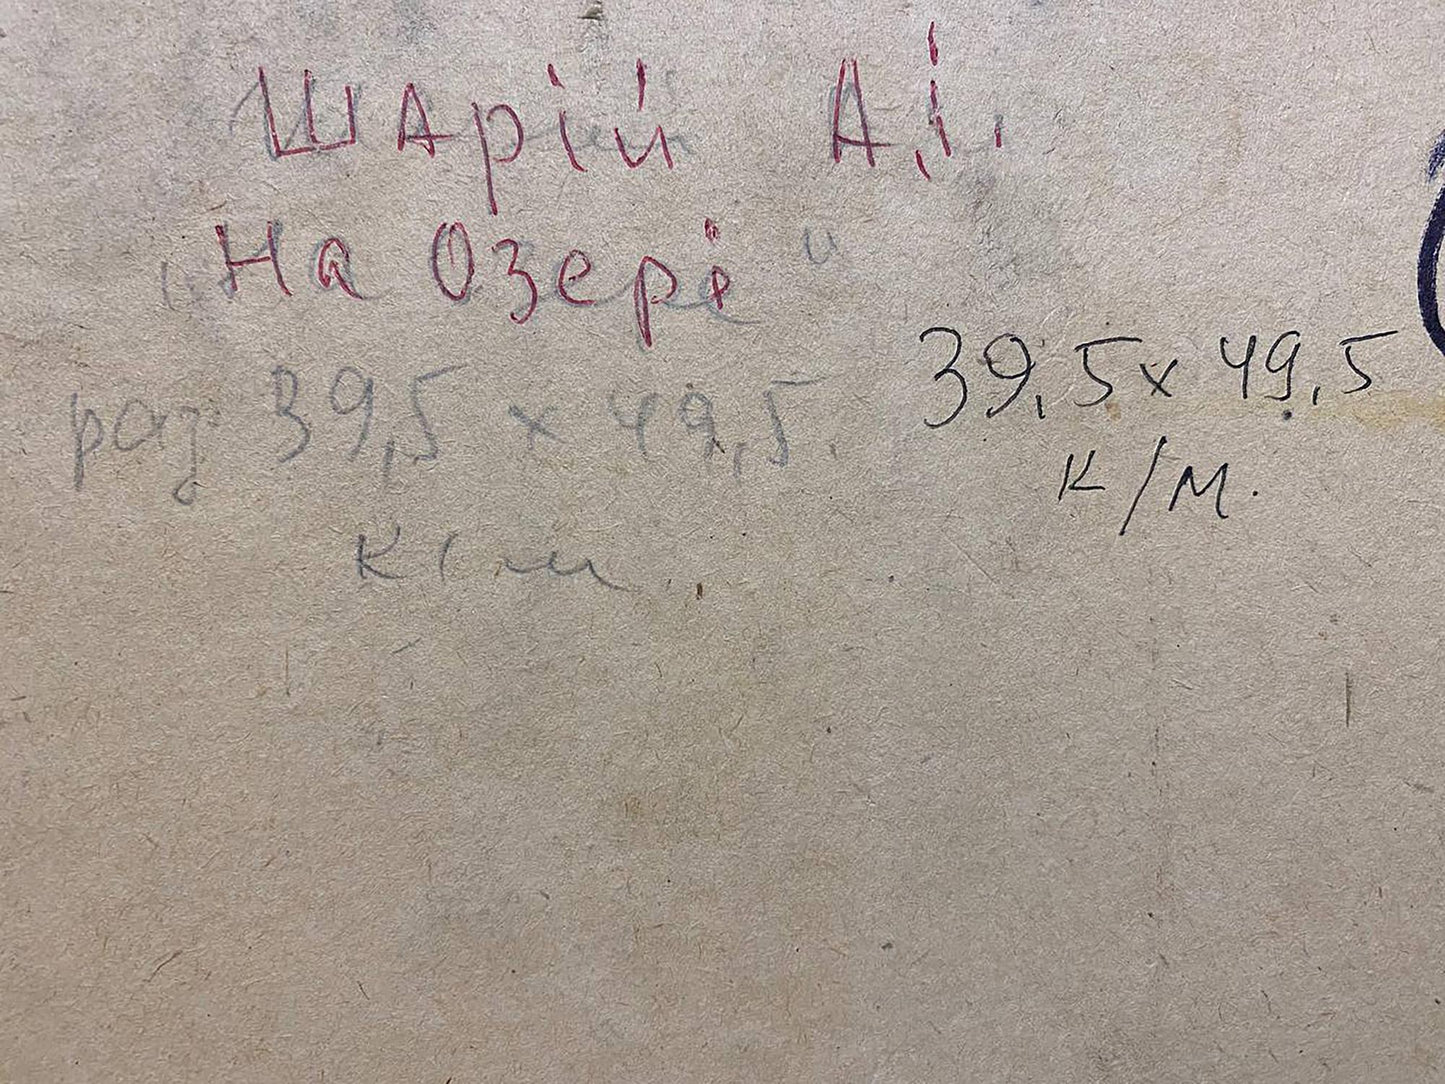 Шарій А.І.
"На Озері"
раз 39,5 х 49,5.
к/м
39,5 х 49,5
к/м.